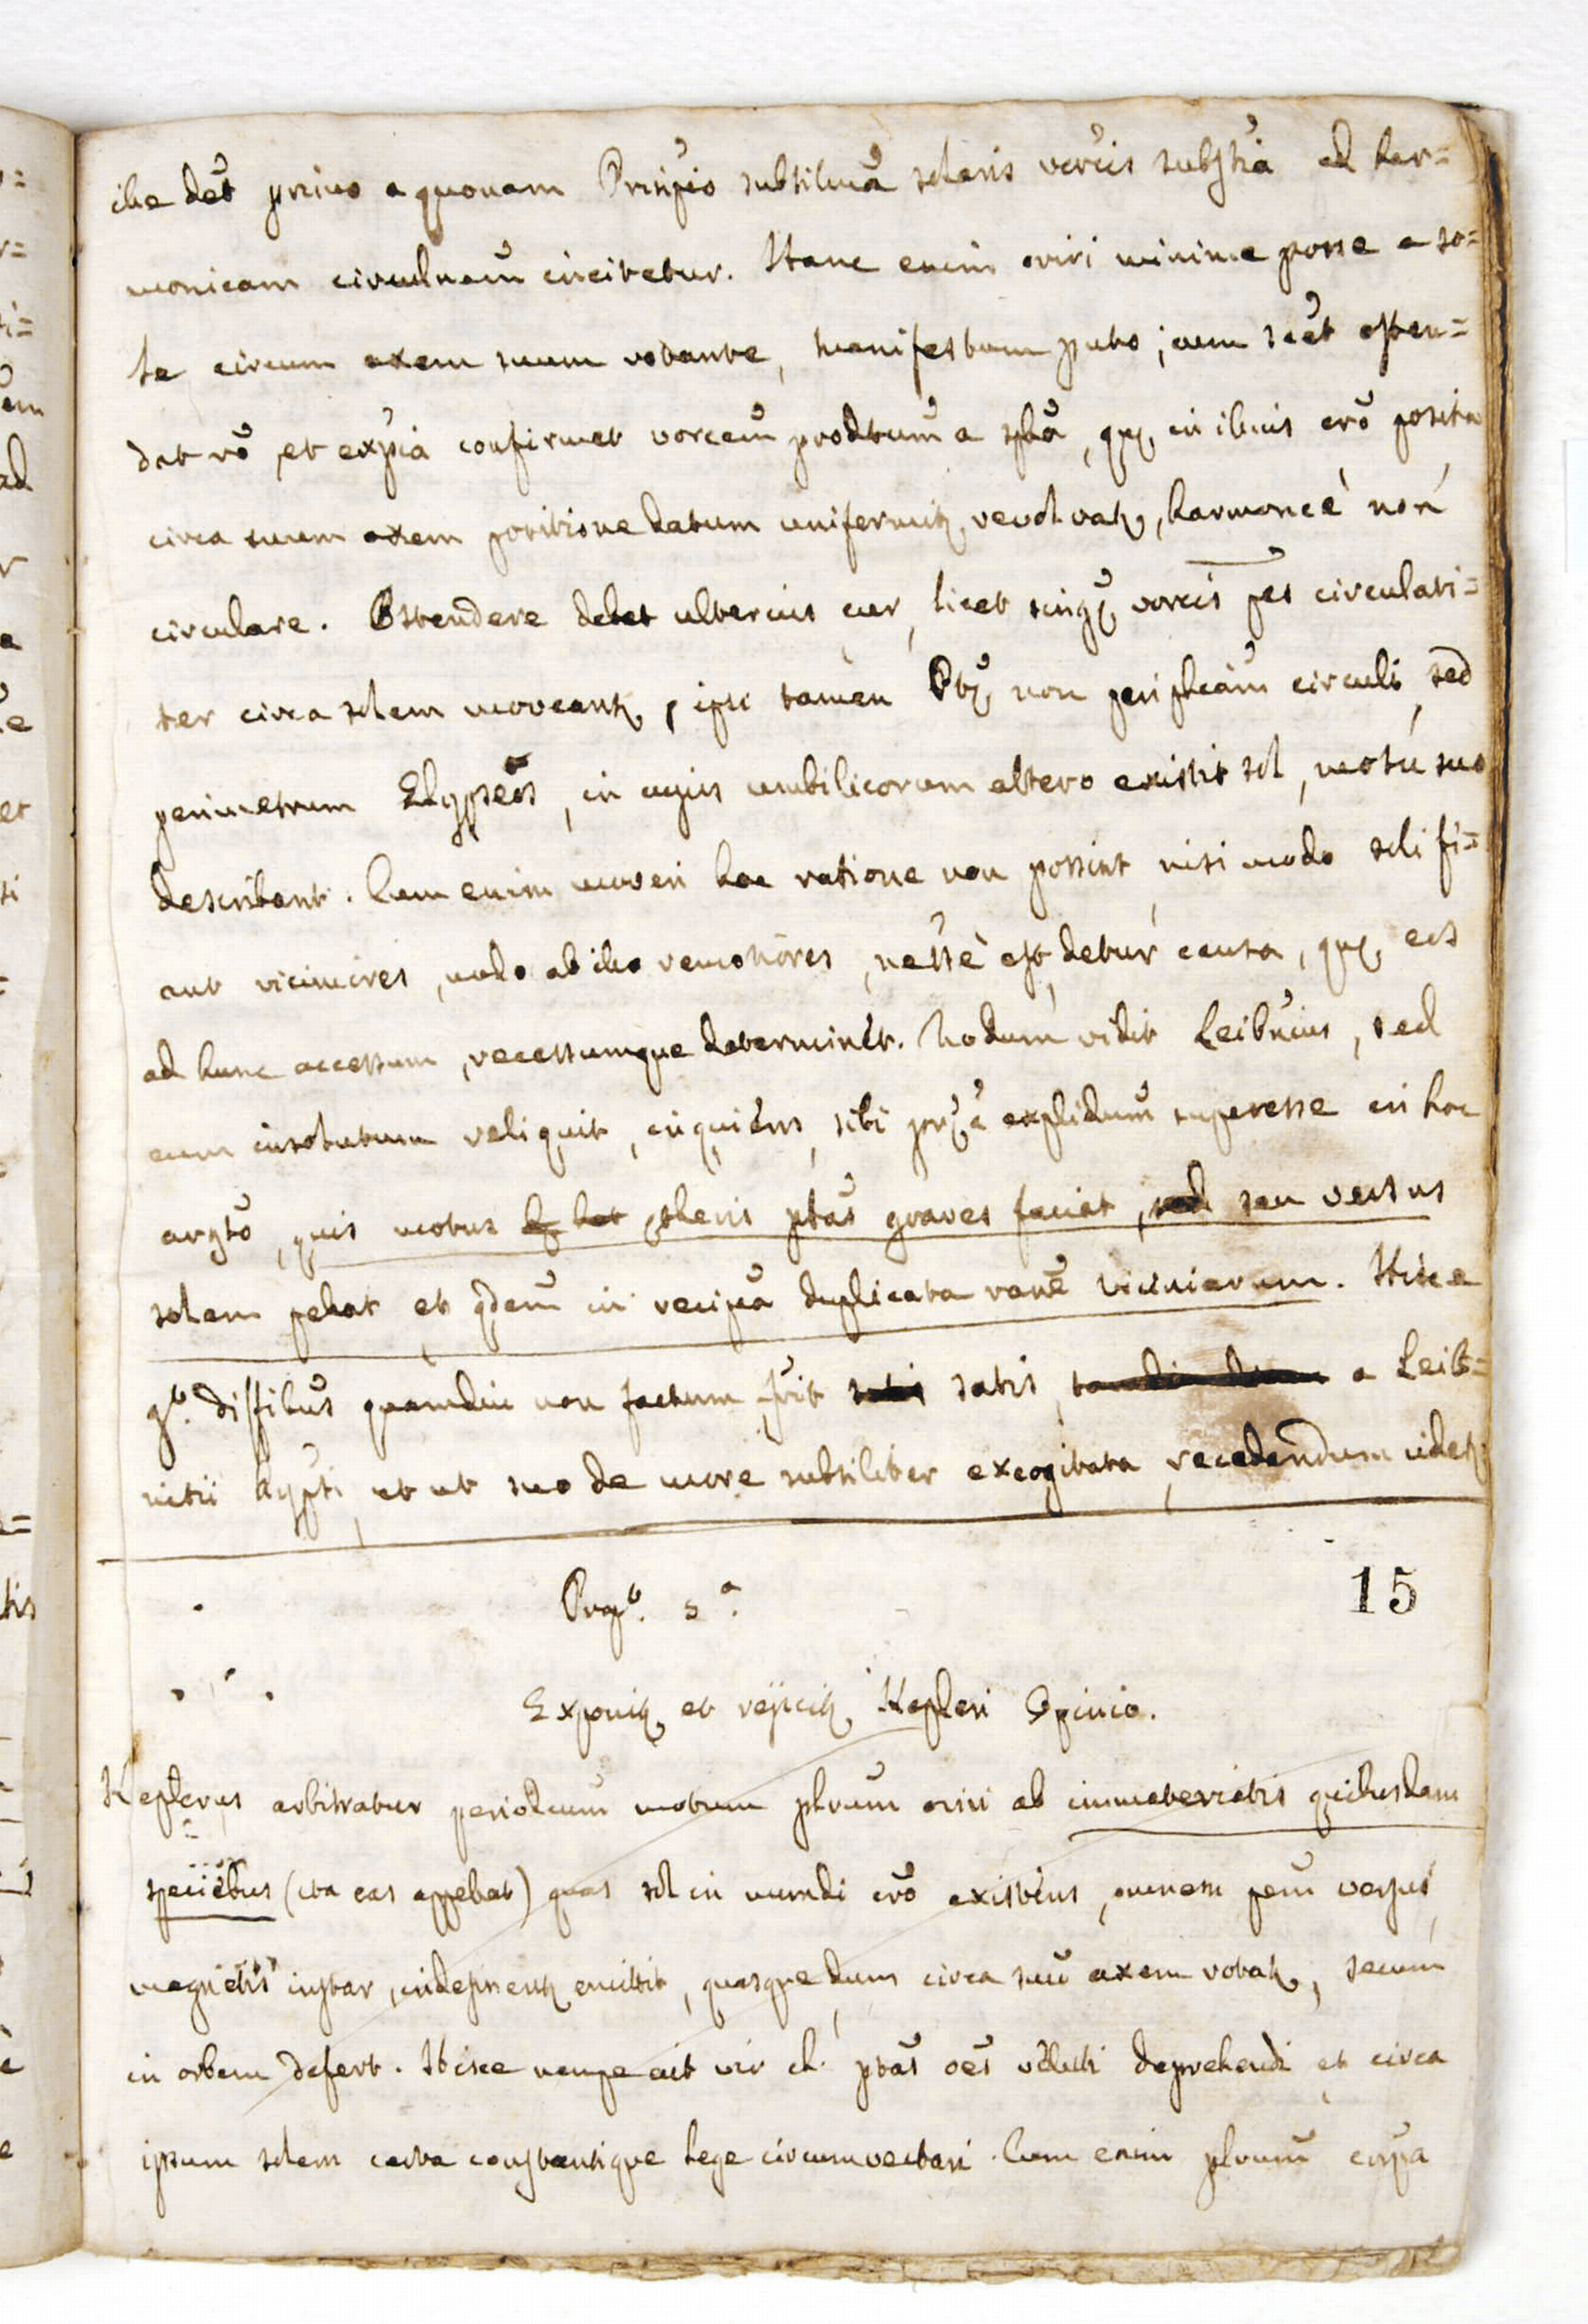 ille det prius a quonam Prisipio subtilima solaris vorcis substia ad har=
monicam circulnem incitetur. Hanc enim oriri minime posse a so=
le circum axem suum rotante, manifestum puto; cum sicet osten=
dat ro et expia confirmet vorcem prodtum a spha, quę in illius cro posita
circa suum axem poritione datum uniformiter revolvatur, harmonce non
circulare. Ostendere debet ulterius cur, licet singę vorcis pes circulari=
ter circa solem moveantur, ipsi tamen Ptę non peripheam circuli, sed
perimetrum Elypseos, in cujus umbilicorum altero existit sol, motu suo
describant. Cum enim moveri hac ratione non possint nisi modo soli fi=
ant viciniores, modo ab illo remotiores, nesse est detur causa, quę eos
ad hunc accessum, recessumque determinet. Nodum vidit Leibnius, sed
eum insolutum reliquit, inquiens, sibi prę expldum superesse in hoc
argto, quis motus solaris ptas graves faciat, sed seu versus
solem pellat et qdem in recipca duplicata rane viciniarum. Hisce
gb. diffibus quamdiu non factum frit satis satis, a Leib=
nitii Hypsi, et ut suo de more subtiliter excogitata, recedendum videtur
Prop. 5.a
15
Exponitur et rejicitur Kepleri Opinio.
Keplerus arbitratur periodcum motum pltrum oriri ab immateriatis quibusdam
speciebus (ita eas appebat) quas sol in mundi cro existens, omnem pem versus
magnetis instar, indefinenter emittit, quasque dum circa suu axem rotatur, secum
in orbem defert. Hisce nempe ait vir cl. ptas oes veluti deprehendi et circa
ipsum solem certa constantique lege circumvectari. Cum enim pltrum corpa